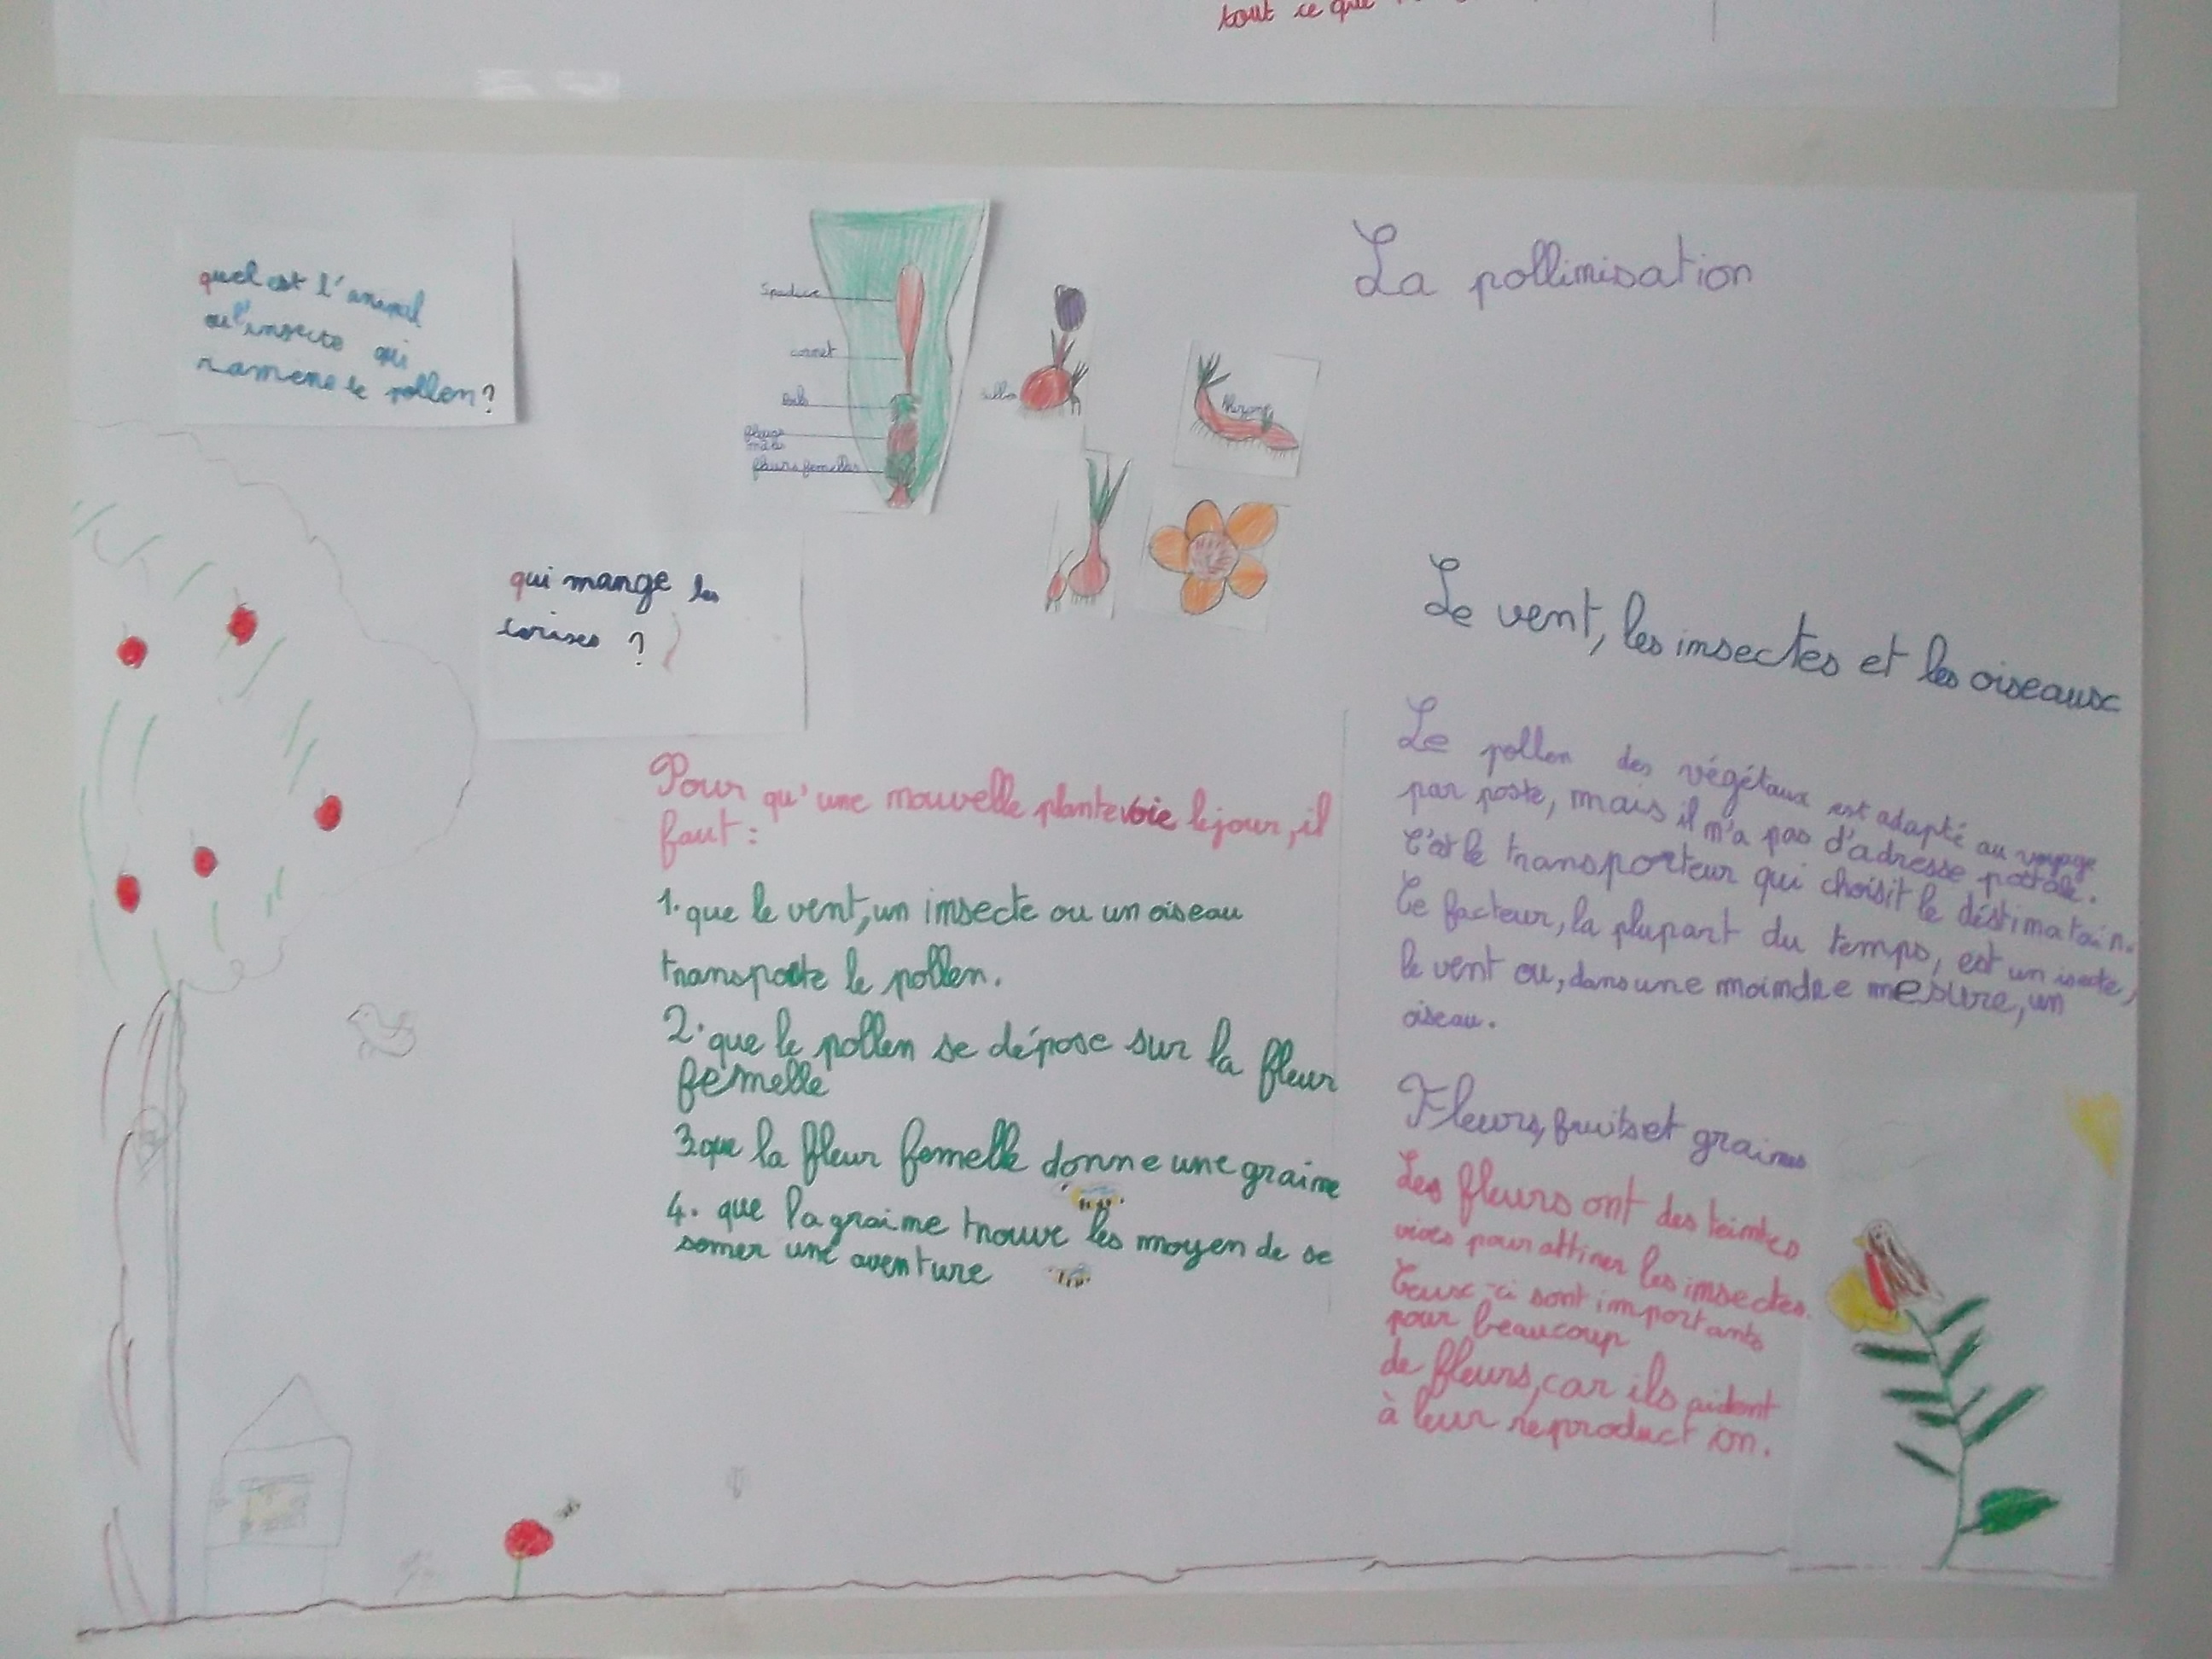 tout ce que
quel est l'animal
ou l'insecte qui
ramène le pollen?
Spadice
cornet
fleurs
males
fleurs femelles
La pollinisation
qui mange les
cerises ?
Pour qu'une nouvelle plante voie le jour, il
faut :
1. que le vent, un insecte ou un oiseau
transporte le pollen.
2. que le pollen se dépose sur la fleur
femelle
3. que la fleur femelle donne une graine
4. que la graine trouve les moyen de se
semer une aventure
Le vent, les insectes et les oiseaux
Le pollen des végétaux est adapté au voyage
par poste, mais il n'a pas d'adresse postale.
C'est le transporteur qui choisit le déstinatain.
Ce facteur, la plupart du temps, est un isecte,
le vent ou, dans une moindre mesure, un
oiseau.
Fleurs, fruits et graines
Les fleurs ont des teintes
vives pour attirer les insectes.
Ceux-ci sont importants
pour beaucoup
de fleurs, car ils aident
à leur reproduction.